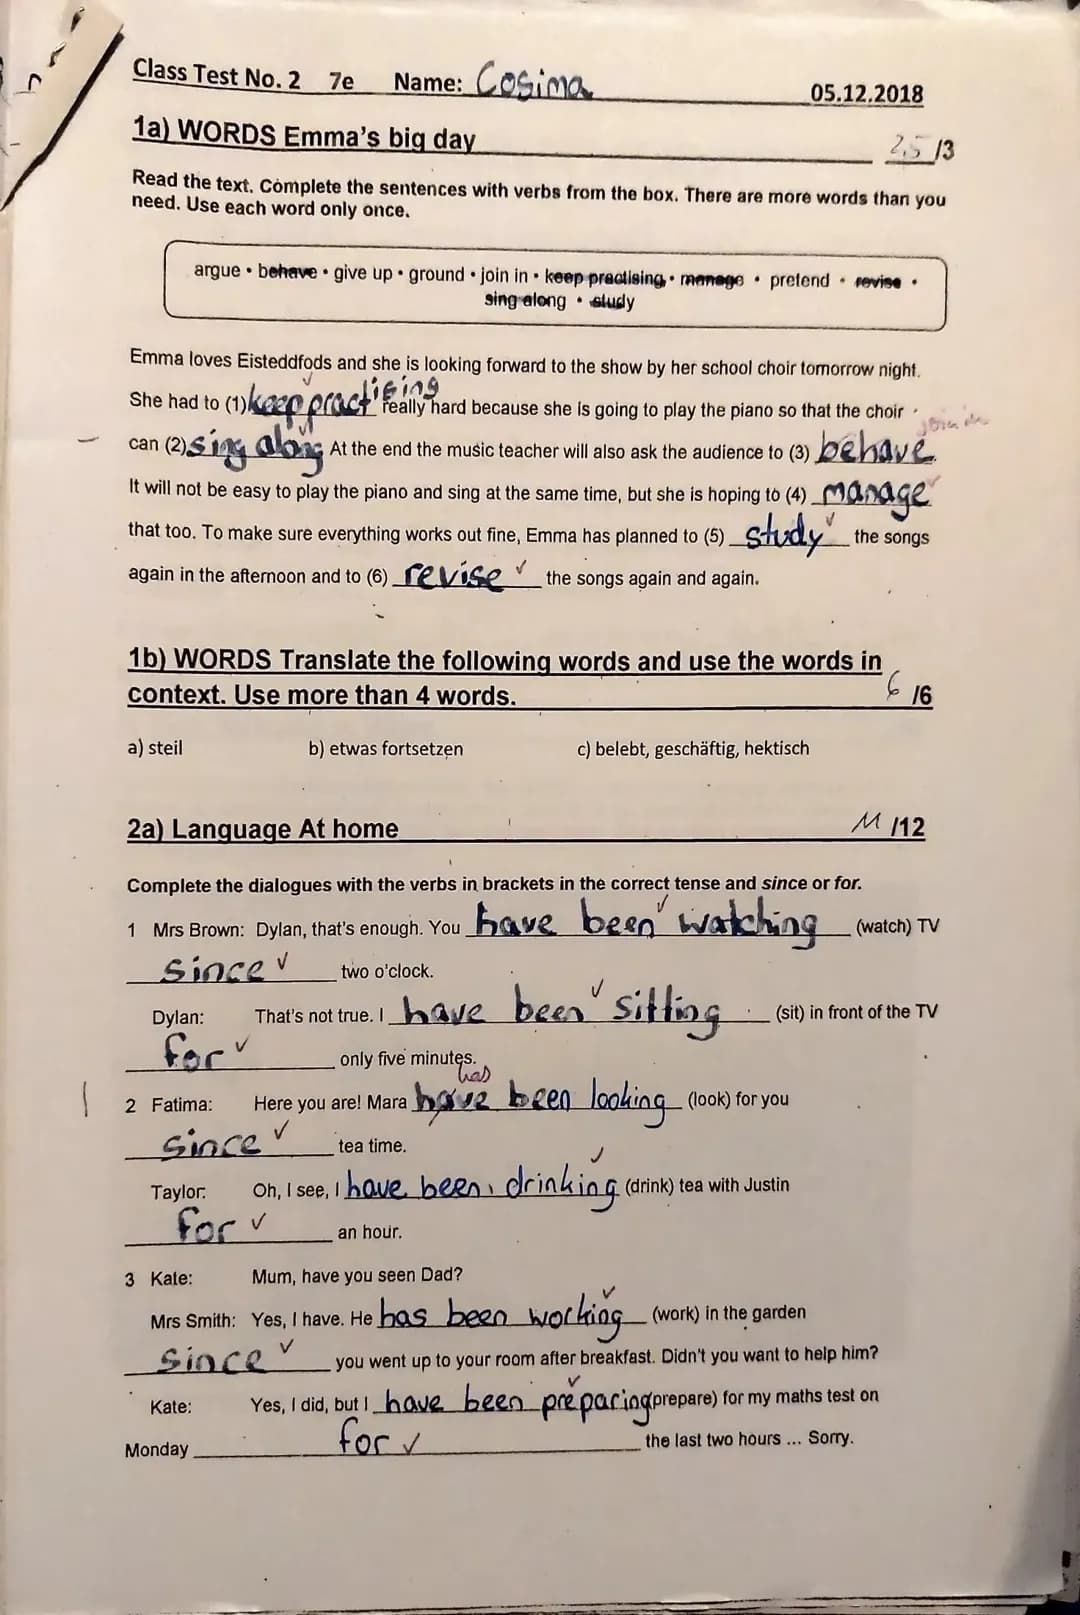 Class Test No. 2 7e Name: Cosima 05.12.2018
1a) WORDS Emma's big day 2,5 /3
Read the text. Complete the sentences with verbs from the box. There are more words than you
need. Use each word only once.
argue • behave • give up • ground • join in • keep practising • manage • pretend • revise •
sing along • study
Emma loves Eisteddfods and she is looking forward to the show by her school choir tomorrow night.
She had to (1) keep practising really hard because she is going to play the piano so that the choir
join in
can (2) sing along At the end the music teacher will also ask the audience to (3) behave.
It will not be easy to play the piano and sing at the same time, but she is hoping to (4) manage
that too. To make sure everything works out fine, Emma has planned to (5) study the songs
again in the afternoon and to (6) revise the songs again and again.
1b) WORDS Translate the following words and use the words in
context. Use more than 4 words. 6 /6
a) steil b) etwas fortsetzen c) belebt, geschäftig, hektisch
2a) Language At home 11 /12
Complete the dialogues with the verbs in brackets in the correct tense and since or for.
1 Mrs Brown: Dylan, that's enough. You have been watching (watch) TV
since two o'clock.
Dylan: That's not true. I have been sitting (sit) in front of the TV
for only five minutes.
has
2 Fatima: Here you are! Mara have been looking (look) for you
since tea time.
Taylor: Oh, I see, I have been drinking (drink) tea with Justin
for an hour.
3 Kate: Mum, have you seen Dad?
Mrs Smith: Yes, I have. He has been working (work) in the garden
since you went up to your room after breakfast. Didn't you want to help him?
Kate: Yes, I did, but I have been preparing (prepare) for my maths test on
Monday for the last two hours ... Sorry.